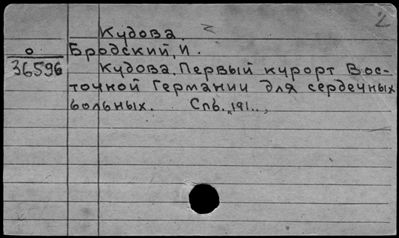 2
Кудова.
Бродский, И.
о
36596
Кудова. Первый курорт Вос-
точной Германии для сердечных
больных. Спб., 191..,